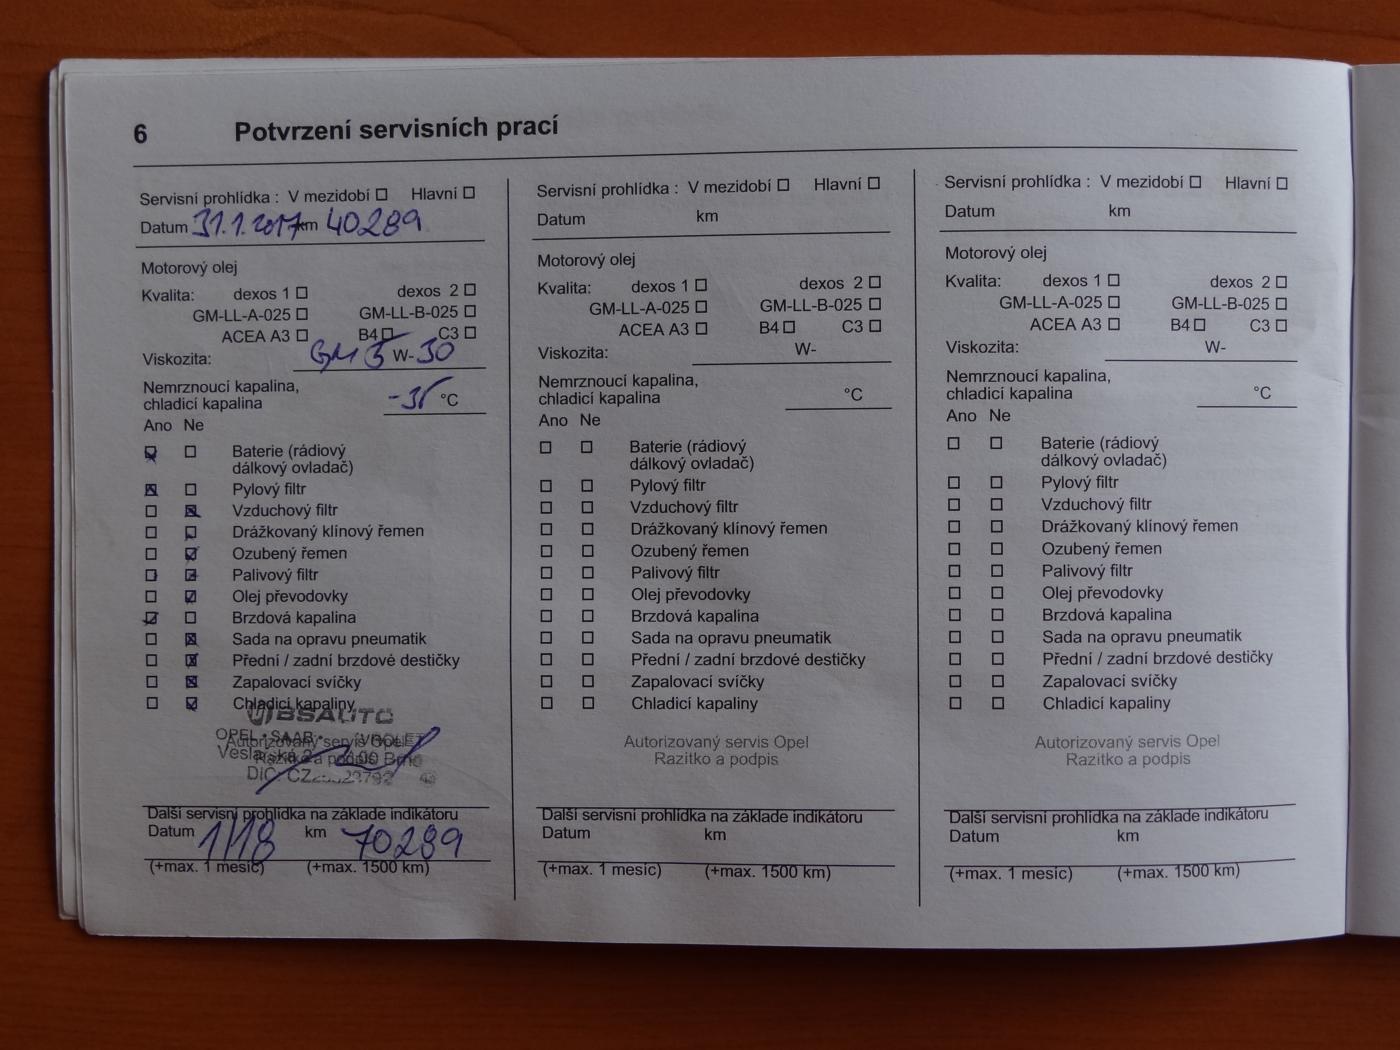 6 Potvrzení servisních prací
Servisní prohlídka : V mezidobí Hlavní
Datum 31.1.2017 km 40289
Motorový olej
Kvalita: dexos 1 dexos 2
GM-LL-A-025 GM-LL-B-025
ACEA A3 B4 C3
Viskozita: GM 5 W-30
Nemrznoucí kapalina,
chladicí kapalina °C
Ano Ne
Baterie (rádiový
dálkový ovladač)
Pylový filtr
Vzduchový filtr
Drážkovaný klínový řemen
Ozubený řemen
Palivový filtr
Olej převodovky
Brzdová kapalina
Sada na opravu pneumatik
Přední / zadní brzdové destičky
Zapalovací svíčky
Chladicí kapaliny
BSAUTO
OPEL • SAAB •
Autorizovaný servis Opel
Razítko a podpis Brno
DIČ: 
Další servisní prohlídka na základě indikátoru
Datum 1/18 km 70289
(+max. 1 mesic) (+max. 1500 km)
Servisní prohlídka : V mezidobí Hlavní
Datum km
Motorový olej
Kvalita: dexos 1 dexos 2
GM-LL-A-025 GM-LL-B-025
ACEA A3 B4 C3
Viskozita: W-
Nemrznoucí kapalina,
chladicí kapalina °C
Ano Ne
Baterie (rádiový
dálkový ovladač)
Pylový filtr
Vzduchový filtr
Drážkovaný klínový řemen
Ozubený řemen
Palivový filtr
Olej převodovky
Brzdová kapalina
Sada na opravu pneumatik
Přední / zadní brzdové destičky
Zapalovací svíčky
Chladicí kapaliny
Autorizovaný servis Opel
Razitko a podpis
Další servisní prohlídka na základe indikátoru
Datum km
(+max. 1 mesic) (+max. 1500 km)
Servisní prohlídka : V mezidobí Hlavní
Datum km
Motorový olej
Kvalita: dexos 1 dexos 2
GM-LL-A-025 GM-LL-B-025
ACEA A3 B4 C3
Viskozita: W-
Nemrznoucí kapalina,
chladicí kapalina °C
Ano Ne
Baterie (rádiový
dálkový ovladač)
Pylový filtr
Vzduchový filtr
Drážkovaný klínový řemen
Ozubený řemen
Palivový filtr
Olej převodovky
Brzdová kapalina
Sada na opravu pneumatik
Přední / zadní brzdové destičky
Zapalovací svíčky
Chladicí kapaliny
Autorizovaný servis Opel
Razitko a podpis
Další servisní prohlídka na základe indikátoru
Datum km
(+max. 1 mesic) (+max. 1500 km)